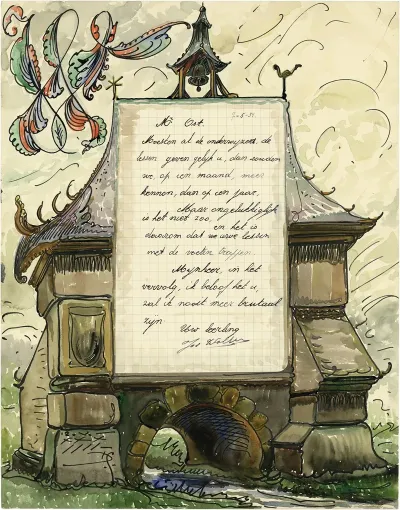 Mr Ost.
Moesten al de onderwijzers, de
lessen geven gelijk u, dan zouden
we, op een maand, meer
kennen, dan op een jaar,
Maar ongelukkiglijk
is het niet zoo, en het is
daarom dat we uwe lessen
met de voeten trappen.
Mijnheer, in het
vervolg, ik beloof het u,
zal ik nooit meer brutaal
zijn.
Uw leerling
Jos